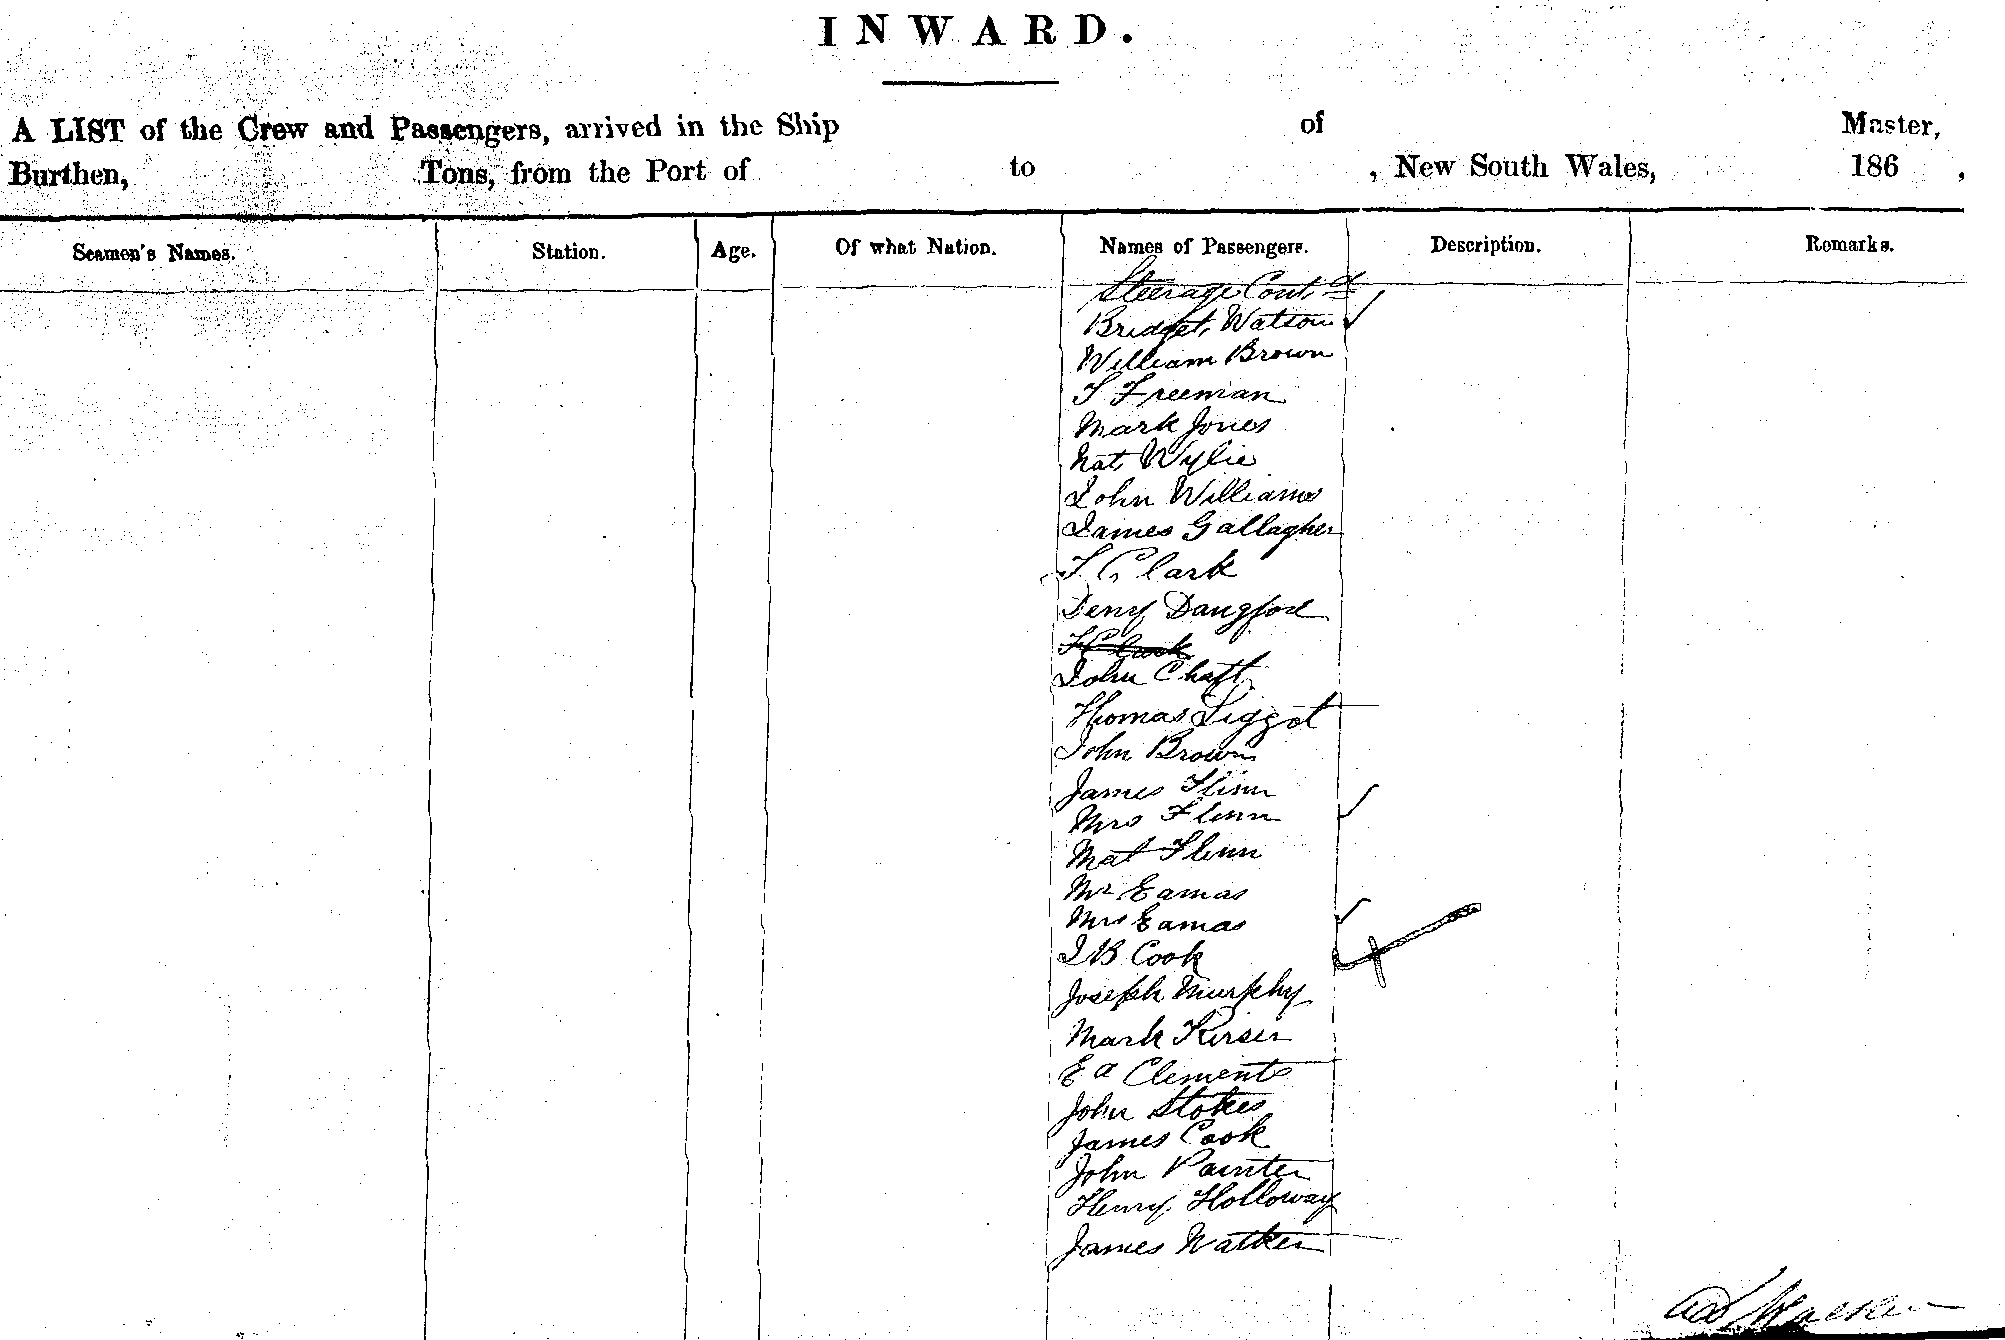 INWARD.
A LIST of the Crew and Passengers, arrived in the Ship of Master,
Burthen, Tons, from the Port of to , New South Wales, 186 ,
Seamen's Names. Station. Age. Of what Nation. Names of Passengers. Description. Remarks.
Steerage Cont.d
Bridget Watson
William Brown
T Freeman
Mark Jones
Nat Wylie
John Williams
James Gallagher
T Clark
John Chaft
Thomas
John Brown
James Flinn
Mrs Flinn
Mat Flinn
Mr Eamas
Mrs Eamas
J B Cook
Joseph Murphy
Mark
E a Clements
John Stokes
James Cook
John Painter
Henry Holloway
James Walker